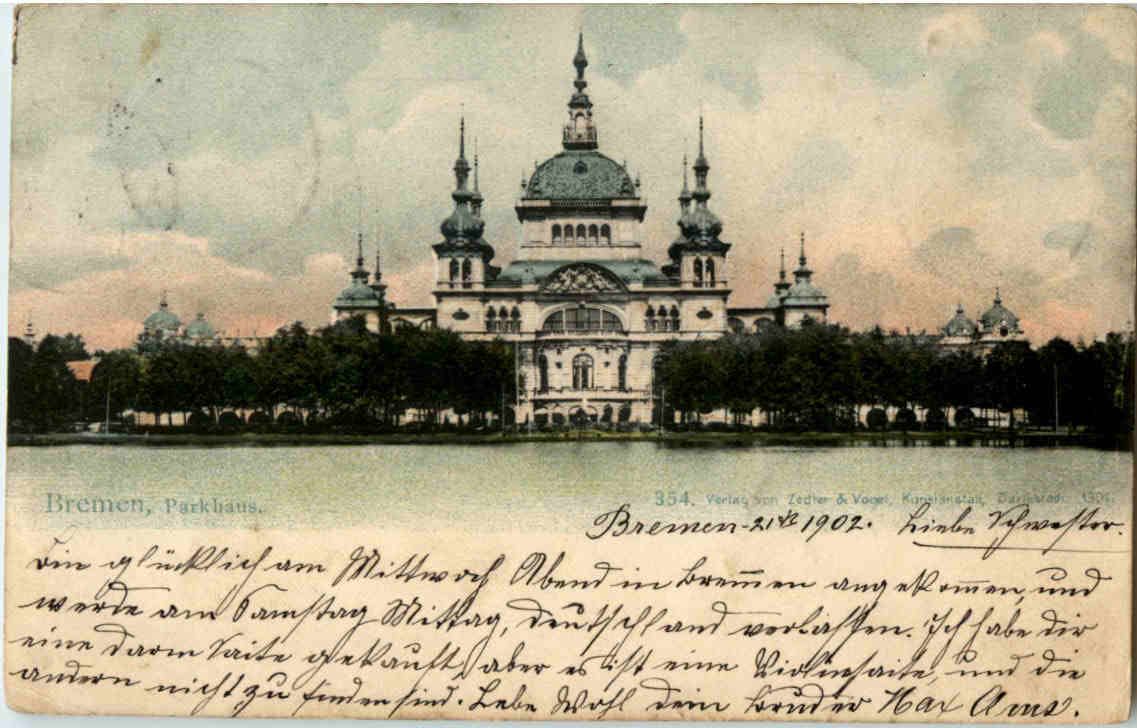 Bremen, Parkhaus.
354. Verlag von Zedler & Vogel, Kunstanstalt, Darmstadt. 1901.
Bremen - 21/8 1902. Liebe Schwester.
Bin glücklich am Mittwoch Abend in Bremen angekommen, und
werde am Samstag Mittag, Deutschland verlassen. Ich habe dir
eine Darm Saite gekauft, aber es ist eine Violinsaite, und die
andern nicht zu finden sind. Lebe Wohl dein Bruder Max